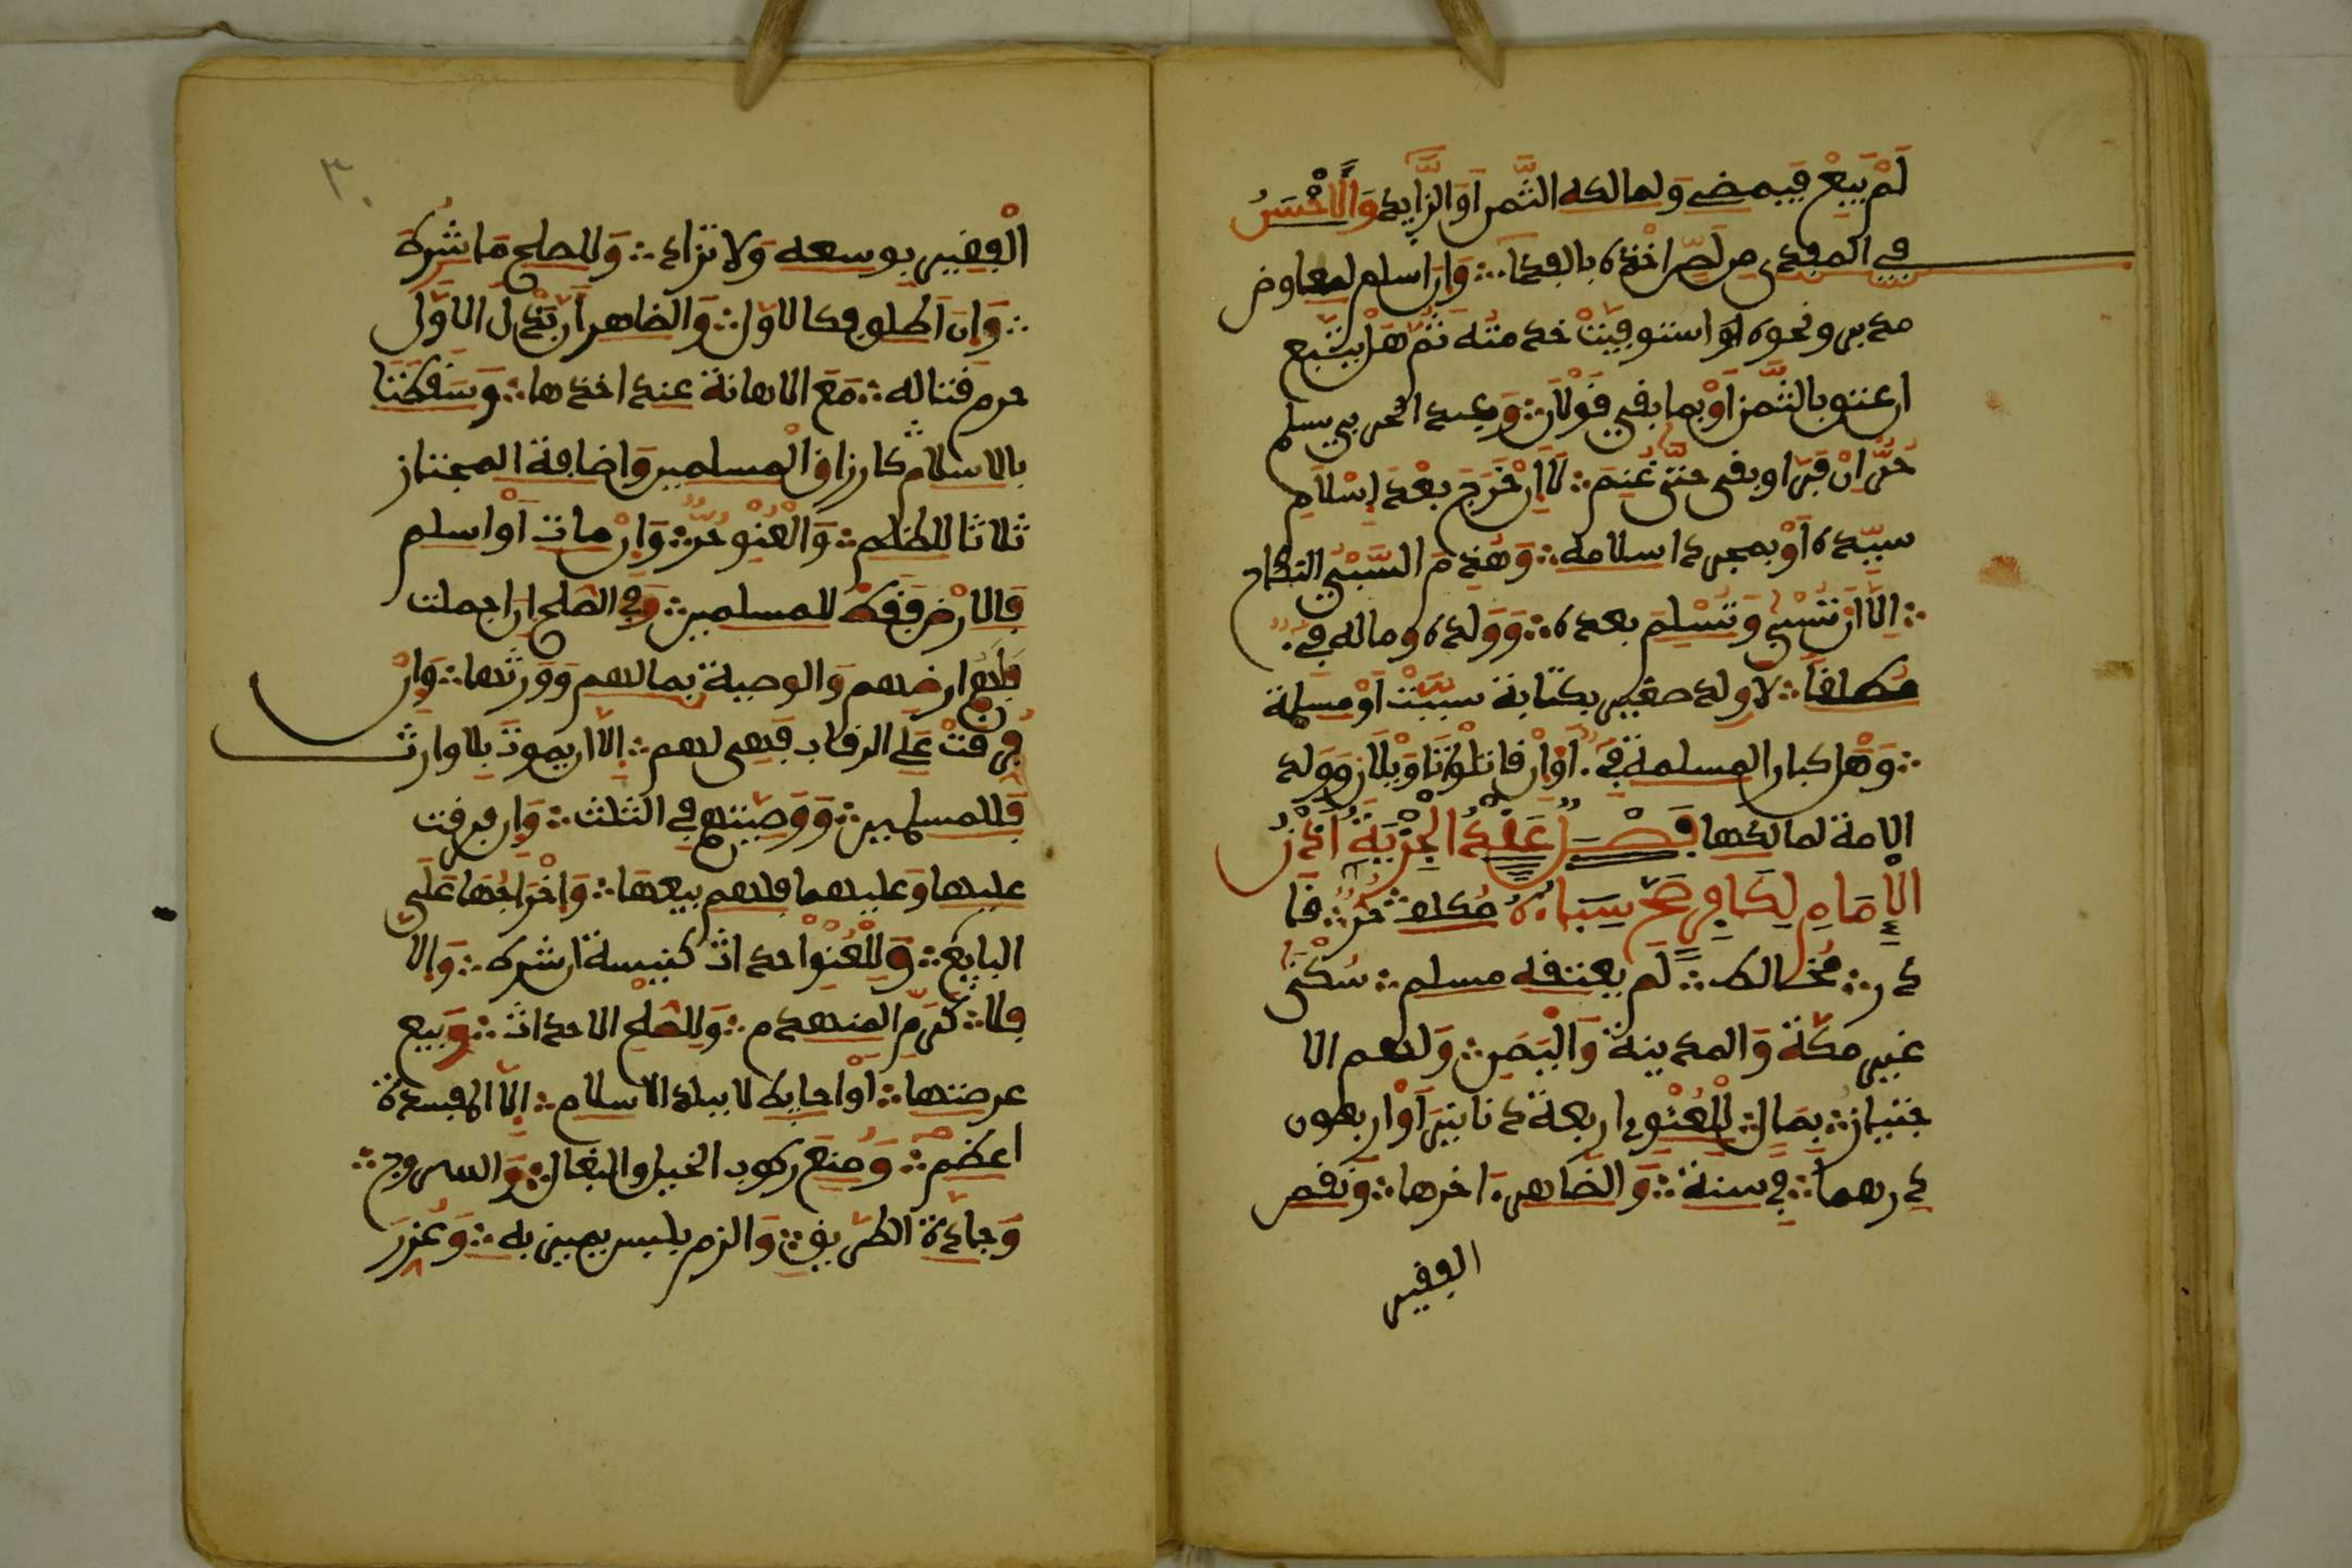 لَمْ يَبِعْ فَيَمضي وَلمالكه الثَّمن أَوَ الزَّايد وَالَاحْسَنُ
في المفدى من لصّ اخْذه بالفدآ ∴ وَإن أسلم لمعاوض
مدبر ونحوه أو استوفيتْ خدمته ثم هَل يتبع
ان عتق بالثَّمن أوْ بما بقي قَوْلاَن ∴ وَعبد الحربي يسلم
حُرٌّ اِنْ فَرَّ او بقي حتَّى غُنِمَ ∴ لَا إنْ خَرَجَ بعْدَ إِسْلاَمِ
سيّده أوْ بمجرد اسلامه ∴ وَهَدَمَ السَّبْيُ النكاح
∴ إِلَّا أنْ تُسْبى وَتُسْلِمَ بعده ∴ وَوَلده وماله فيء
مُطلقا ∴ لا ولد صغير بكتابة سبيتْ أوْ مسلمة
∴ وَهَل كبار المسلمة فَيْءٌ أَوْ إنْ قَاتلُوا تَاوِيلَان وَوَلد
الامة لمالكها فَصْلٌ عَقْدُ الْجِزْيَةِ اذْنُ
الْإِمَامِ لِكَافِرٍ صَحَّ سِبَاؤُهُ مُكلف ∴ حُرٌّ ∴ قَا
در ∴ مُخالط ∴ لَم يعتقه مسلم ∴ سُكْنَى
غير مَكَّة وَالمدينة وَالْيَمَنِ ∴ وَلهم الا
جتياز ∴ بِمَال ∴ لِلْعُنْوِي اربعة دنانيَر أَوْ اربعون
درهما ∴ في سنة ∴ وَالظاهر اخرها ∴ وَنقص
الفقير
٣٠
الْفقير بوسعه وَلا تزاد ∴ وَللصلحى مَا شُرِطَ
∴ وَإن أطلق فكالاوّل ∴ وَالظاهر إن بَذَلَ الاوَّلَ
حرم قتاله ∴ مَعَ الاهانة عند اخذها ∴ وَسَقَطَتَا
بالاسلام كارزاق الْمسلمين وَاضافة المجتاز
ثلاثا للظلم ∴ وَالْعُنْوِي حُرٌّ ∴ وَإنْ مات أوْ اسلم
فَالارْض فَقَطْ للمسلمين ∴ وَفي الصّلح إن اجملت
فَلهم ارضهم وَالوصية بمالهم وَوَرثُوها ∴ وَإنْ
فرقتْ عَلى الرقاب فَهي لهم ∴ إلَّا ان يموتَ بلا وارث
فَللمسلمين ∴ وَوَصيتهم في الثلث ∴ وَإن فرقت
عليها وَعليهما فلهم بيعها ∴ وَاخْرَاجُهَا عَلى
البايع ∴ وَلِلْعُنْوي احداث كنيسة ان شرط ∴ وَإلا
فلا ∴ كَرَمِّ المنهدم ∴ وَللصُّلحي الاحداث ∴ وَبيع
عرصتها ∴ أوْ حايط لا ببلد الاسلام ∴ إلّا لمفسدة
اعظَم ∴ وَمنعَ ركوب الخيل والبغال ∴ وَالسروج ∴
وَجادّة الطريق ∴ وَالزم بلبس يميزه به ∴ وَعُزرَ